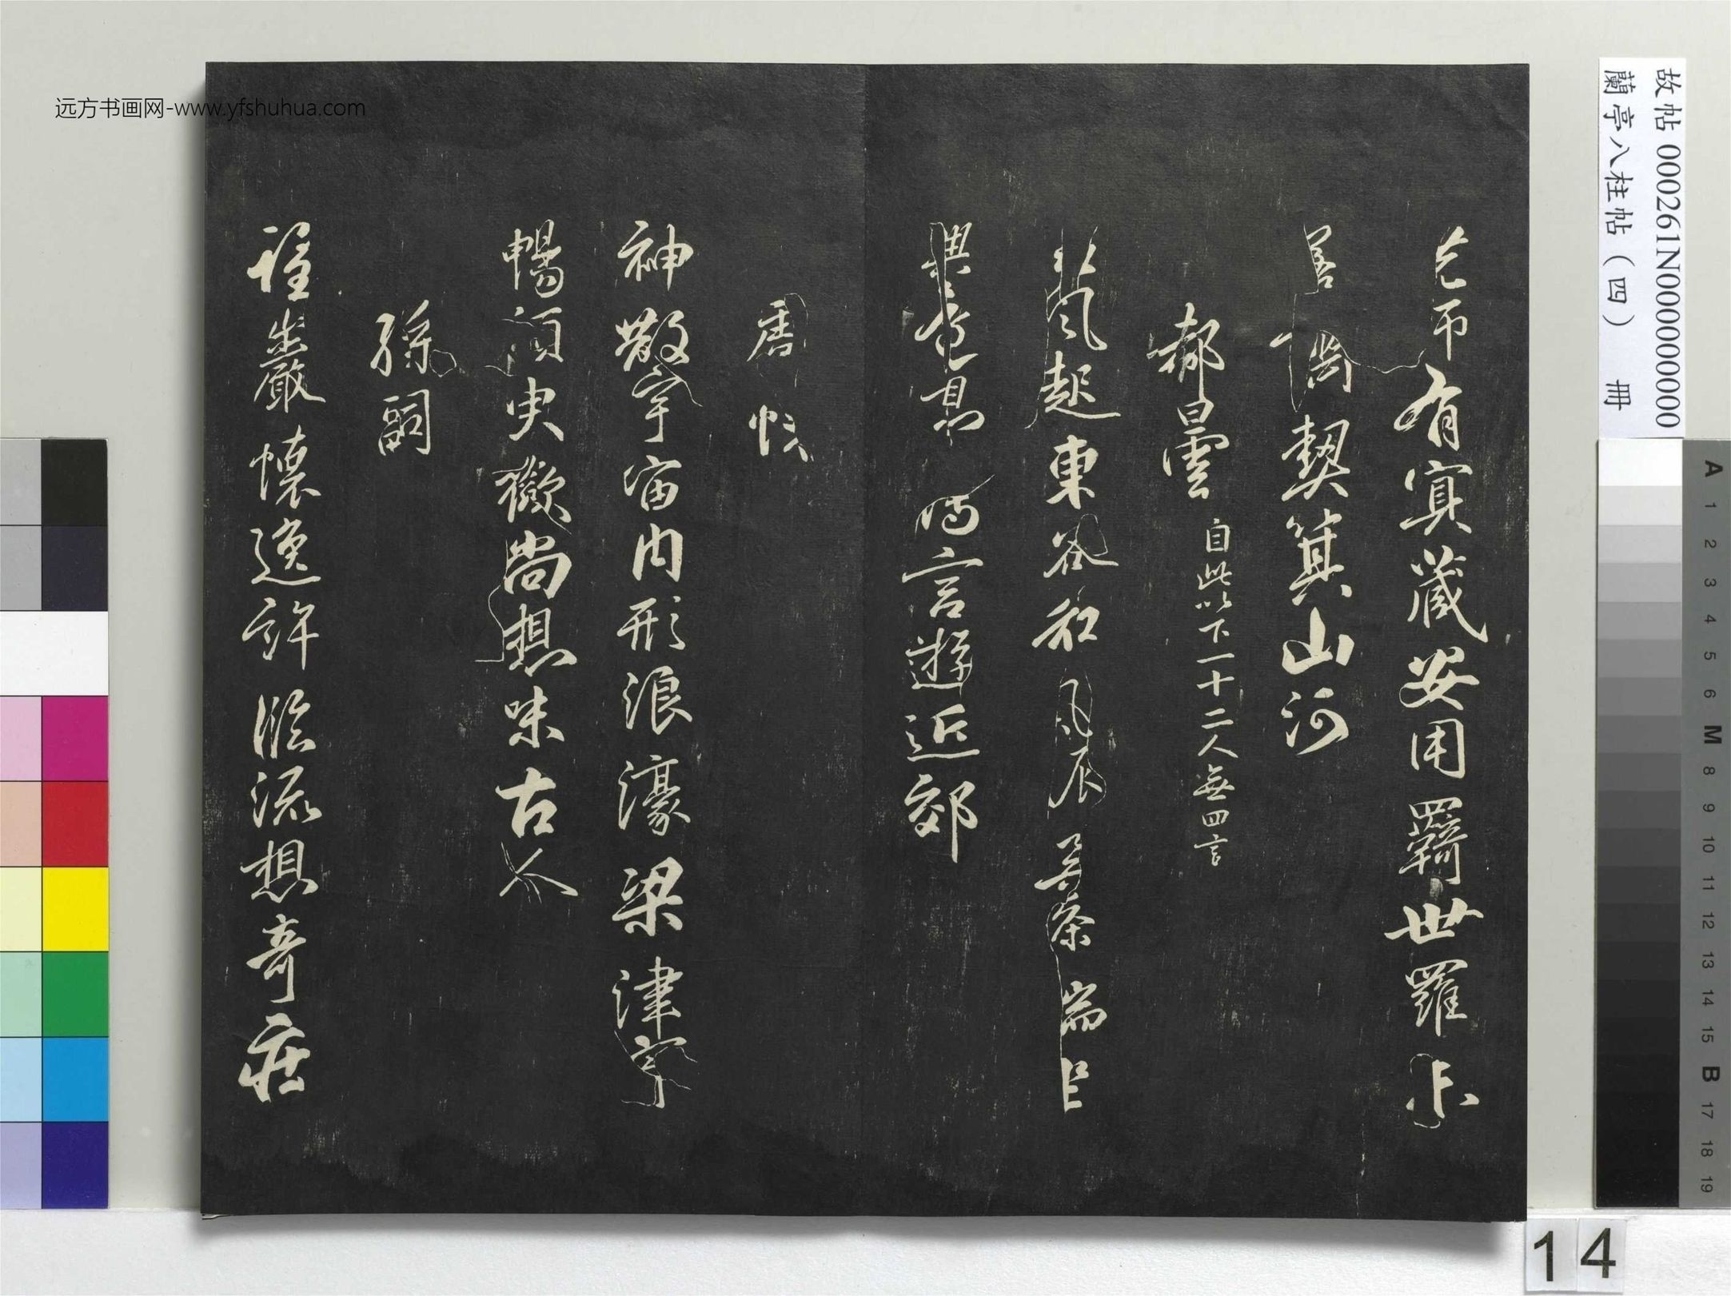 有寘藏安用羈世羅
契箕山河
郗曇 自此以下一十二人無四言
風起東谷和條端
言遊近郊
神散宇宙内形浪濠梁津
暢須臾歡尚想味古人
孫嗣
望巖懷逸許臨流想奇莊
故帖 000261N000000000
蘭亭八柱帖(四) 冊
远方书画网-www.yfshuhua.com
A
1
2
3
4
5
6
M
8
9
10
11
12
13
14
15
B
17
18
19
14